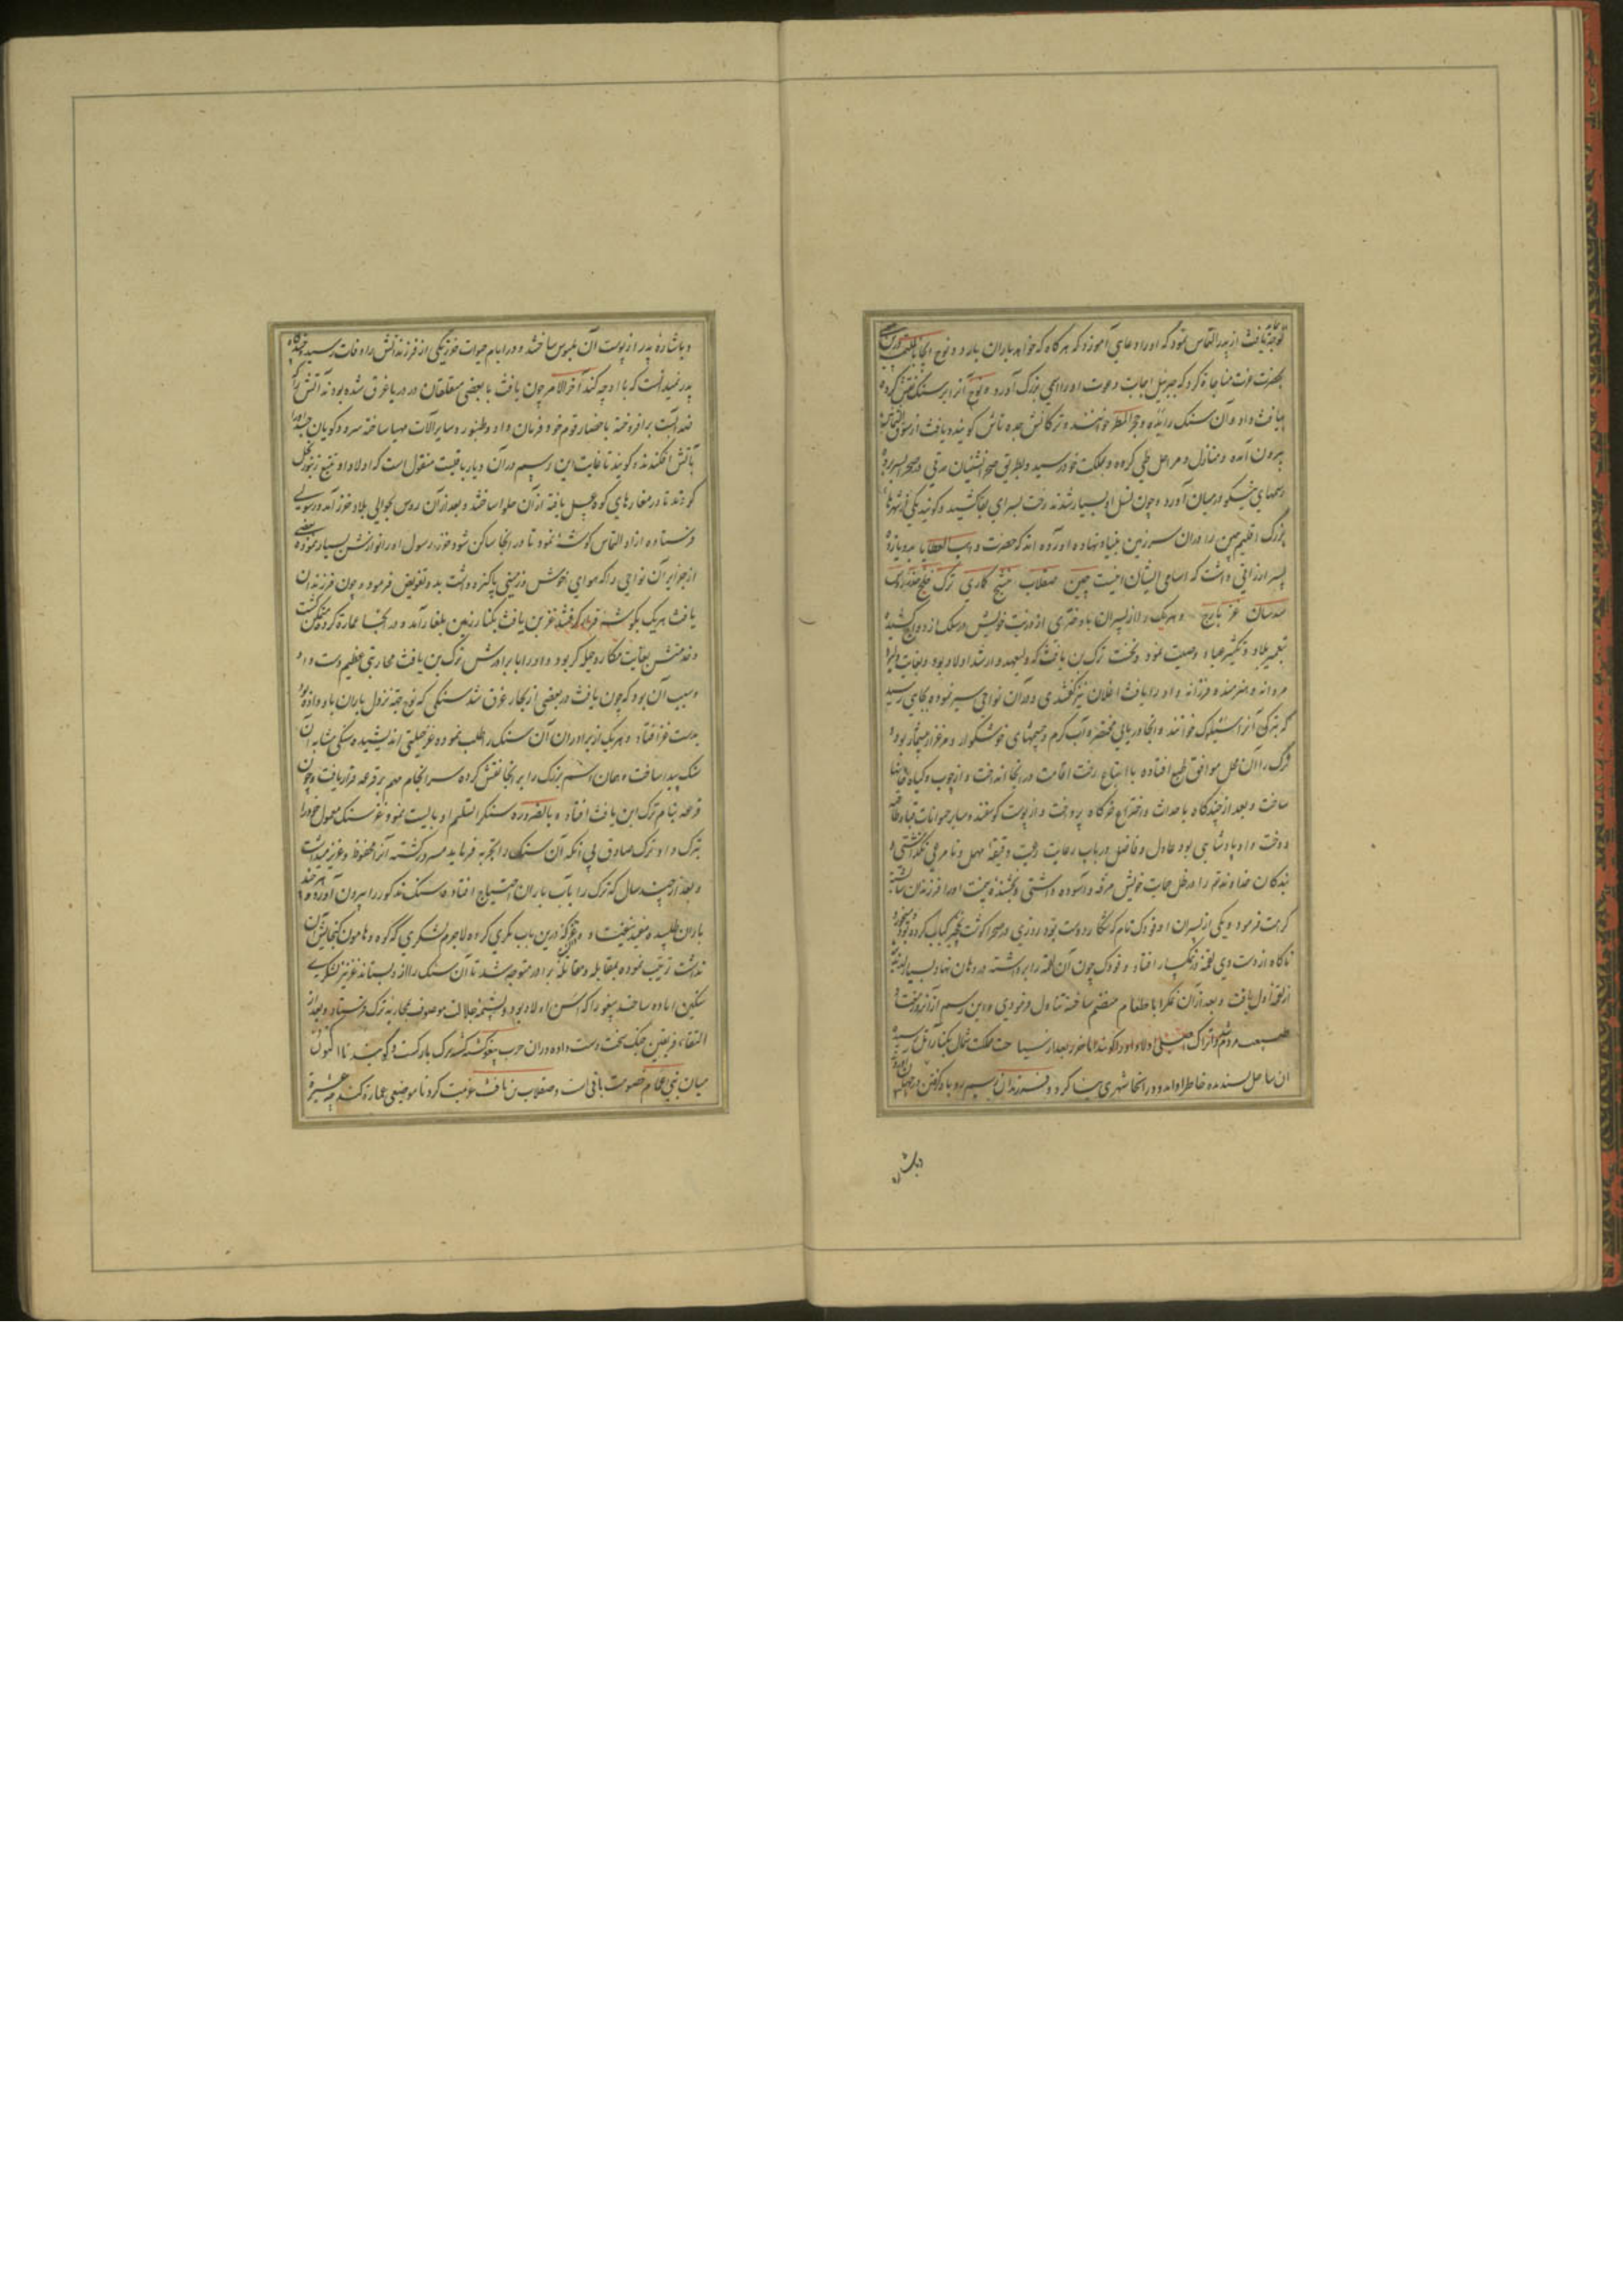 توجه یافت از پدر التماس نمود که او را دعایی آموزد که هرگاه که خواهد باران بارد و نوح
بحضرت عزت مناجاة کرد که جبرئیل اجابت دعوت او را اسمی بزرگ آورد و نوح آنرا بر سنک نقش کرده
بیافث داد و آن سنک را یده و حجر المطر خوانند و ترکانش جده تاش کویند و یافث از سوق الثمانین
بیرون آمده و منازل و مراحل طی کرده و بملکت خود رسید و بطریق صحرانشینان مدتی در صحرا بسر برد
رسمهای نیکو در میان آورد و چون نسل او بسیار شدند رخت بسرای بقا کشید و کویند یکی از شهرهاء
بزرک اقلیم چین را در آن سرزمین بنیاد نهاد و آورده اند که حضرت واهب العطایا بدو یازده
پسر ارزانی داشت که اسامی ایشان اینست چین صقلاب منسج کماری ترک خلج خزر روس
سدسان غز یارج و هر یک را از پسران با دختری از ذریت خویش در سلک ازدواج کشید
بتعمیر بلاد و تکثیر عباد وصیت نمود و نخست ترک بن یافث که ولیعهد و ارشد اولاد بود و بغایت دلیر
مردانه و هنرمند و فرزانه و او را یافث اغلان نیز کفتندی در آن نواحی سیر نموده بجایی رسید
که بترکی آنرا سیلوک خوانند و آنجا دریایی مختصر و آب کرم و چشمهای خوشکوار و مرغزار بیشمار بود
ترک را آن محل موافق طبع افتاده با اتباع رخت اقامت در آنجا انداخت و از چوب و کیاه خانها
ساخت و بعد از چندکاه باحداث و اختراع خرکاه پرداخت و از پوست کوسفند و سایر حیوانات قبا و طاقیه
دوخت و او پادشاهی بود عادل و فاضل در باب رعایت رعیت دقیقهٔ مهمل و نامرعی نکذاشتی و
بندکان خداوند را در ظل حمایت خویش مرفه و آسوده داشتی و بخشندهٔ بی منت او را فرزندان شایسته
کرامت فرمود و یکی از پسران او فودک نام که شکار دوست بود روزی در صحرا کوشت نخجیر کباب کرده میخورد
ناکاه از دست وی لقمهٔ در نمکسار افتاد و فودک چون آن لقمه را برداشته در دهان نهاد بسیار لذیذتر
از لقمهٔ اول یافت و بعد از آن نمک را با طعام منضم ساخته تناول فرمودی و این رسم از آن روز
ملکت شمال بکنار آتل رسید
آن ساحل پسندیده خاطر او آمد و در آنجا شهری بنا کرد و فرزندان برسم روباه کرفتن
و باشارهٔ
و باشارهٔ پدر از پوست آن ملبوس ساختند و در ایام حیوات خزر یکی از فرزندانش را وفات رسید و چندکاه
پدر نمیدانست که با او چه کند آخر الامر چون یافث با بعضی متعلقان در دریا غرق شده بودند آتش را که
ضد آبست برافروخته باحضار قوم خود فرمان داد و طنبور و سایر آلات مهیا ساخته سرود کویان جسد او را
بآتش افکندند و کویند تا غایت این رسم در آن دیار باقیست منقول است که اولاد او تتبع زنبور نحل
کردند تا در مغارهای کوه عسل یافته از آن حلوا ساختند و بعد از آن روس بحوالی بلاد خزر آمد و رسولی
فرستاده از او التماس کوشهٔ نمود تا در آنجا ساکن شود خزر رسول او را نوازش بسیار نموده بعضی
از جزایر آن نواحی را که هوای خوش و زمینی پاکیزه داشت بدو تفویض فرمود و چون فرزندان
یافث هر یک بکوشهٔ قرار کرفتند غز بن یافث بکنار زمین بلغار آمد و در آنجا عمارة کرده متمکن کشت
و غز منش بغایت مکار و حیله کر بود و او را با برادرش ترک بن یافث محاربتی عظیم دست داد
و سبب آن بود که چون یافث در بعضی از بحار غرق شد سنکی که نوح جهة نزول باران باو داده بود
بدست غز افتاد و هر یک از برادران آن سنک را طلب نموده غز حیلتی اندیشیده سنکی مشابه آن
سنک پیدا ساخت و همان اسم بزرک را بر آنجا نقش کرده سرانجام مهم بر قرعه قرار یافت و چون
قرعه بنام ترک ابن یافث افتاد و بالضروره سنک را تسلیم او بایست نمود غز سنک معمول خود را
بترک داد و ترک صادق بی آنکه آن سنک را تجربه فرماید مسرور کشته آنرا محفوظ و عزیز میداشت
و بعد از چند سال که ترک را بآب باران احتیاج افتاد و سنک مذکور را بیرون آورده هر چند
باران طلبیده مفید نیفتاد و دانست که غز درین باب مکری کرده لاجرم لشکری که کوه و هامون کنجایش آن
نداشت ترتیب نموده بمقابله و مقاتلهٔ برادر متوجه شد تا آن سنک را از و بستاند غز نیز لشکری
سنکین آماده ساخت بیغو را که اسن اولاد بود و بشیمهٔ جلادت موصوف بمحاربهٔ ترک فرستاد و بعد از
التقاء فریقین جنک سخت دست داده در آن حرب بیغو کشته کشته ترک بازکشت و کویند تا اکنون
میان بنی اعمام خصومت باقی است و صقلاب بن یافث عزیمت کرد تا موضعی عمارة کند چه عشیرة